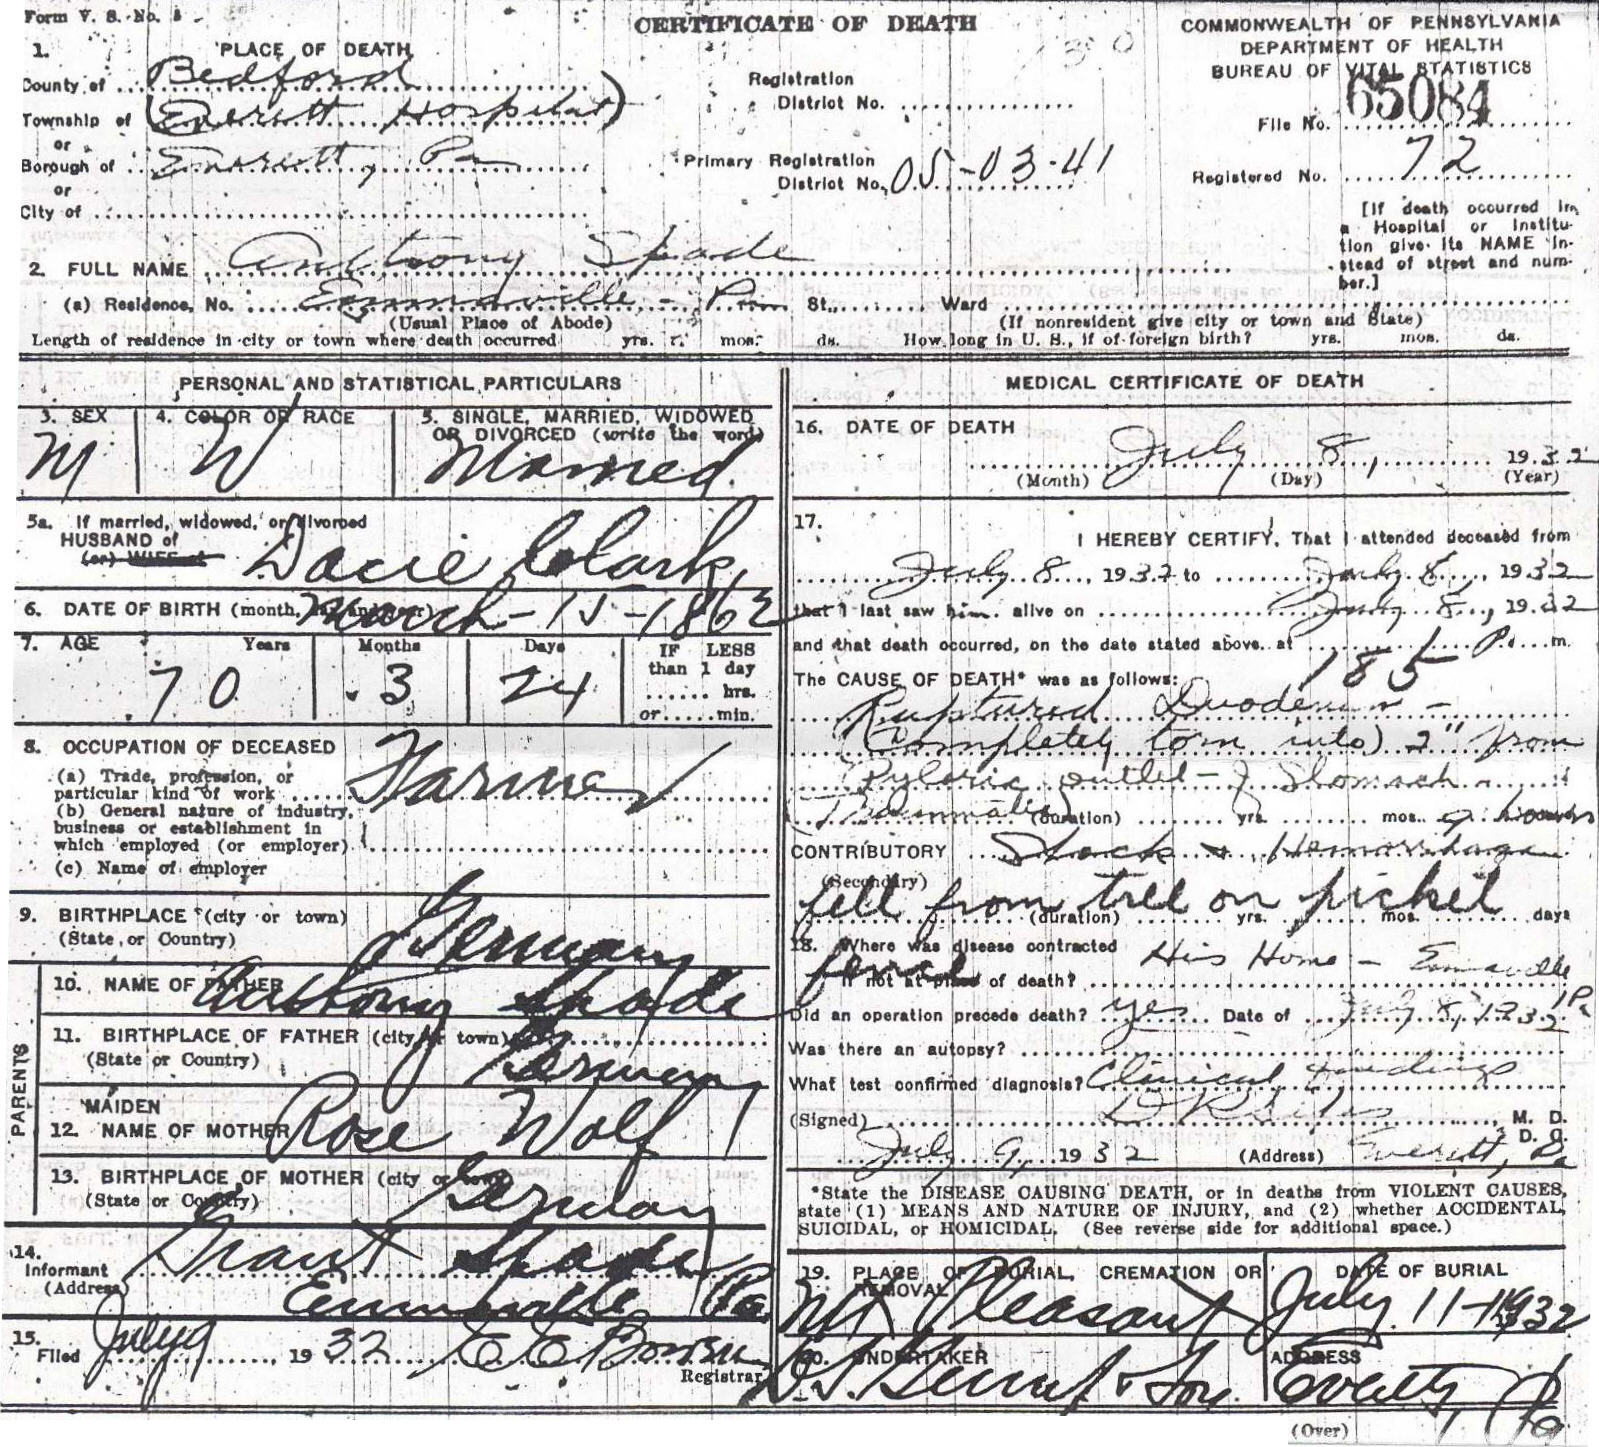 Form V. S. No. 5
CERTIFICATE OF DEATH
COMMONWEALTH OF PENNSYLVANIA
DEPARTMENT OF HEALTH
BUREAU OF VITAL STATISTICS
1. PLACE OF DEATH
County of Bedford
Township of (Everett Hospital)
or
Borough of Everett, Pa
or
City of
Registration District No.
Primary Registration District No. 05-03-41
File No. 65084
Registered No. 72
[If death occurred in a Hospital or Institution give its NAME instead of street and number.]
2. FULL NAME Anthony Spade
(a) Residence, No. Emmaville - Pa St., Ward
(Usual Place of Abode) (If nonresident give city or town and State)
Length of residence in city or town where death occurred yrs. mos. ds. How long in U. S., if of foreign birth? yrs. mos. ds.
PERSONAL AND STATISTICAL PARTICULARS
3. SEX M
4. COLOR OR RACE W
5. SINGLE, MARRIED, WIDOWED OR DIVORCED (write the word) Married
5a. If married, widowed, or divorced
HUSBAND of
(or) WIFE of
Dacie Clark
6. DATE OF BIRTH (month, day and year) March - 15 - 1862
7. AGE Years 70 Months 3 Days 24 IF LESS than 1 day hrs. or min.
8. OCCUPATION OF DECEASED
(a) Trade, profession, or particular kind of work Farmer
(b) General nature of industry, business or establishment in which employed (or employer)
(c) Name of employer
9. BIRTHPLACE (city or town)
(State or Country) Germany
PARENTS
10. NAME OF FATHER Anthony Spade
11. BIRTHPLACE OF FATHER (city or town)
(State or Country) Germany
12. MAIDEN NAME OF MOTHER Rose Wolf
13. BIRTHPLACE OF MOTHER (city or town)
(State or Country) Germany
14. Informant Grant Spade
(Address) Emmaville Pa
15. Filed July 9, 1932
Registrar
MEDICAL CERTIFICATE OF DEATH
16. DATE OF DEATH
July 8, 1932
(Month) (Day) (Year)
17. I HEREBY CERTIFY, That I attended deceased from
July 8, 1932 to July 8, 1932
that I last saw him alive on July 8, 1932
and that death occurred, on the date stated above, at P. m.
The CAUSE OF DEATH* was as follows: 185
Ruptured Duodenum -
(Completely torn into) 2" from
Pyloric outlet - of Stomach
(Traumatic) (duration) yrs. mos. 9 hours
CONTRIBUTORY Shock & Hemorrhage
(Secondary)
fell from tree on picket
(duration) yrs. mos. days
fence
18. Where was disease contracted
if not at place of death? His Home - Emmaville
Did an operation precede death? Yes Date of July 8, 1932
Was there an autopsy?
What test confirmed diagnosis? Clinical findings
(Signed) M. D.
D. O.
July 9, 1932 (Address) Everett, Pa
*State the DISEASE CAUSING DEATH, or in deaths from VIOLENT CAUSES,
state (1) MEANS AND NATURE OF INJURY, and (2) whether ACCIDENTAL,
SUICIDAL, or HOMICIDAL. (See reverse side for additional space.)
19. PLACE OF BURIAL, CREMATION OR REMOVAL
Mt Pleasant
DATE OF BURIAL
July 11-1932
20. UNDERTAKER
& Son
ADDRESS
Everett, Pa
(Over)